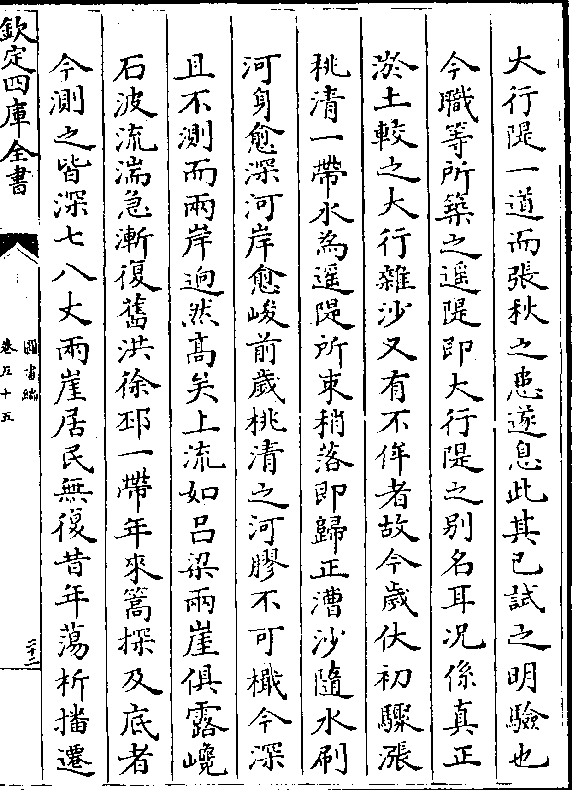 大行隄一道而張秋之患遂息此其已試之明驗也
今職等所築之遥隄即大行隄之别名耳况係真正
淤土較之大行雜沙又有不侔者故今歲伏初驟漲
桃清一帶水為遥隄所束稍落即歸正漕沙隨水刷
河身愈深河岸愈峻前歲桃清之河膠不可檝今深
且不測而兩岸逈然高矣上流如吕梁兩崖俱露巉
石波流湍急漸復舊洪徐邳一帶年來篙探及底者
今測之皆深七八丈兩崖居民無復昔年蕩析播遷
欽定四庫全書
圖書編
卷五十五
三十二